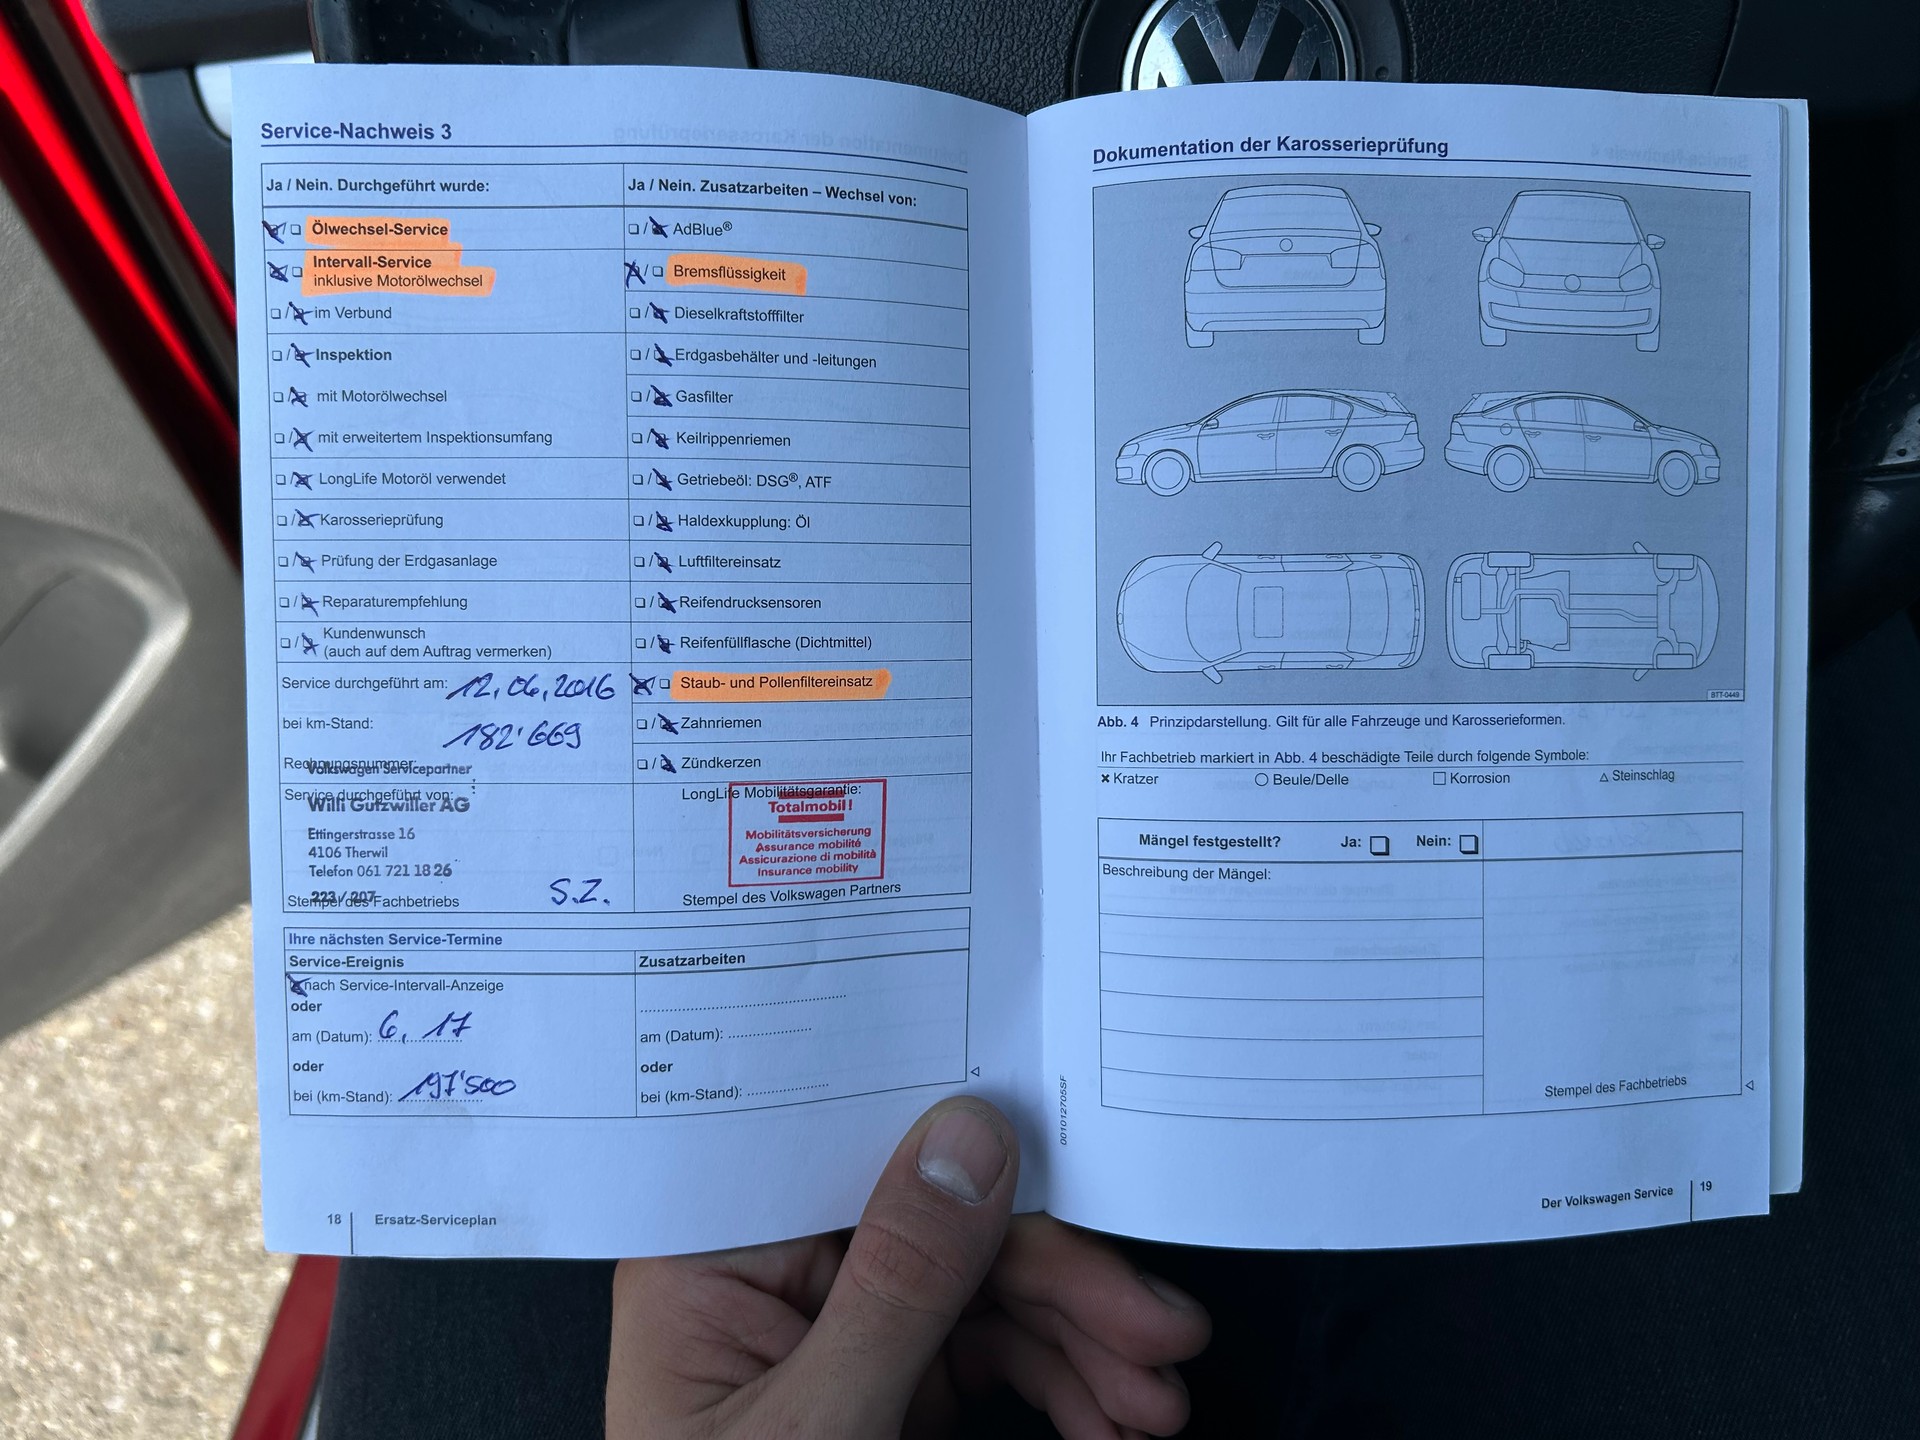 Service-Nachweis 3
Ja / Nein. Durchgeführt wurde:
Ölwechsel-Service
Intervall-Service
inklusive Motorölwechsel
im Verbund
Inspektion
mit Motorölwechsel
mit erweitertem Inspektionsumfang
LongLife Motoröl verwendet
Karosserieprüfung
Prüfung der Erdgasanlage
Reparaturempfehlung
Kundenwunsch
(auch auf dem Auftrag vermerken)
Service durchgeführt am: 12.06.2016
bei km-Stand: 182'669
Rechnungsnummer:
Volkswagen Servicepartner
Service durchgeführt von:
Willi Gutzwiller AG
Ettingerstrasse 16
4106 Therwil
Telefon 061 721 18 26
223 / 207
Stempel des Fachbetriebs
S.Z.
Ja / Nein. Zusatzarbeiten – Wechsel von:
AdBlue®
Bremsflüssigkeit
Dieselkraftstofffilter
Erdgasbehälter und -leitungen
Gasfilter
Keilrippenriemen
Getriebeöl: DSG®, ATF
Haldexkupplung: Öl
Luftfiltereinsatz
Reifendrucksensoren
Reifenfüllflasche (Dichtmittel)
Staub- und Pollenfiltereinsatz
Zahnriemen
Zündkerzen
LongLife Mobilitätsgarantie:
Totalmobil!
Mobilitätsversicherung
Assurance mobilité
Assicurazione di mobilità
Insurance mobility
Stempel des Volkswagen Partners
Ihre nächsten Service-Termine
Service-Ereignis
nach Service-Intervall-Anzeige
oder
am (Datum): 6. 17
oder
bei (km-Stand): 197'500
Zusatzarbeiten
am (Datum):
oder
bei (km-Stand):
18
Ersatz-Serviceplan
Dokumentation der Karosserieprüfung
BTT-0449
Abb. 4 Prinzipdarstellung. Gilt für alle Fahrzeuge und Karosserieformen.
Ihr Fachbetrieb markiert in Abb. 4 beschädigte Teile durch folgende Symbole:
Kratzer Beule/Delle Korrosion Steinschlag
Mängel festgestellt? Ja: Nein:
Beschreibung der Mängel:
Stempel des Fachbetriebs
001012705SF
Der Volkswagen Service
19